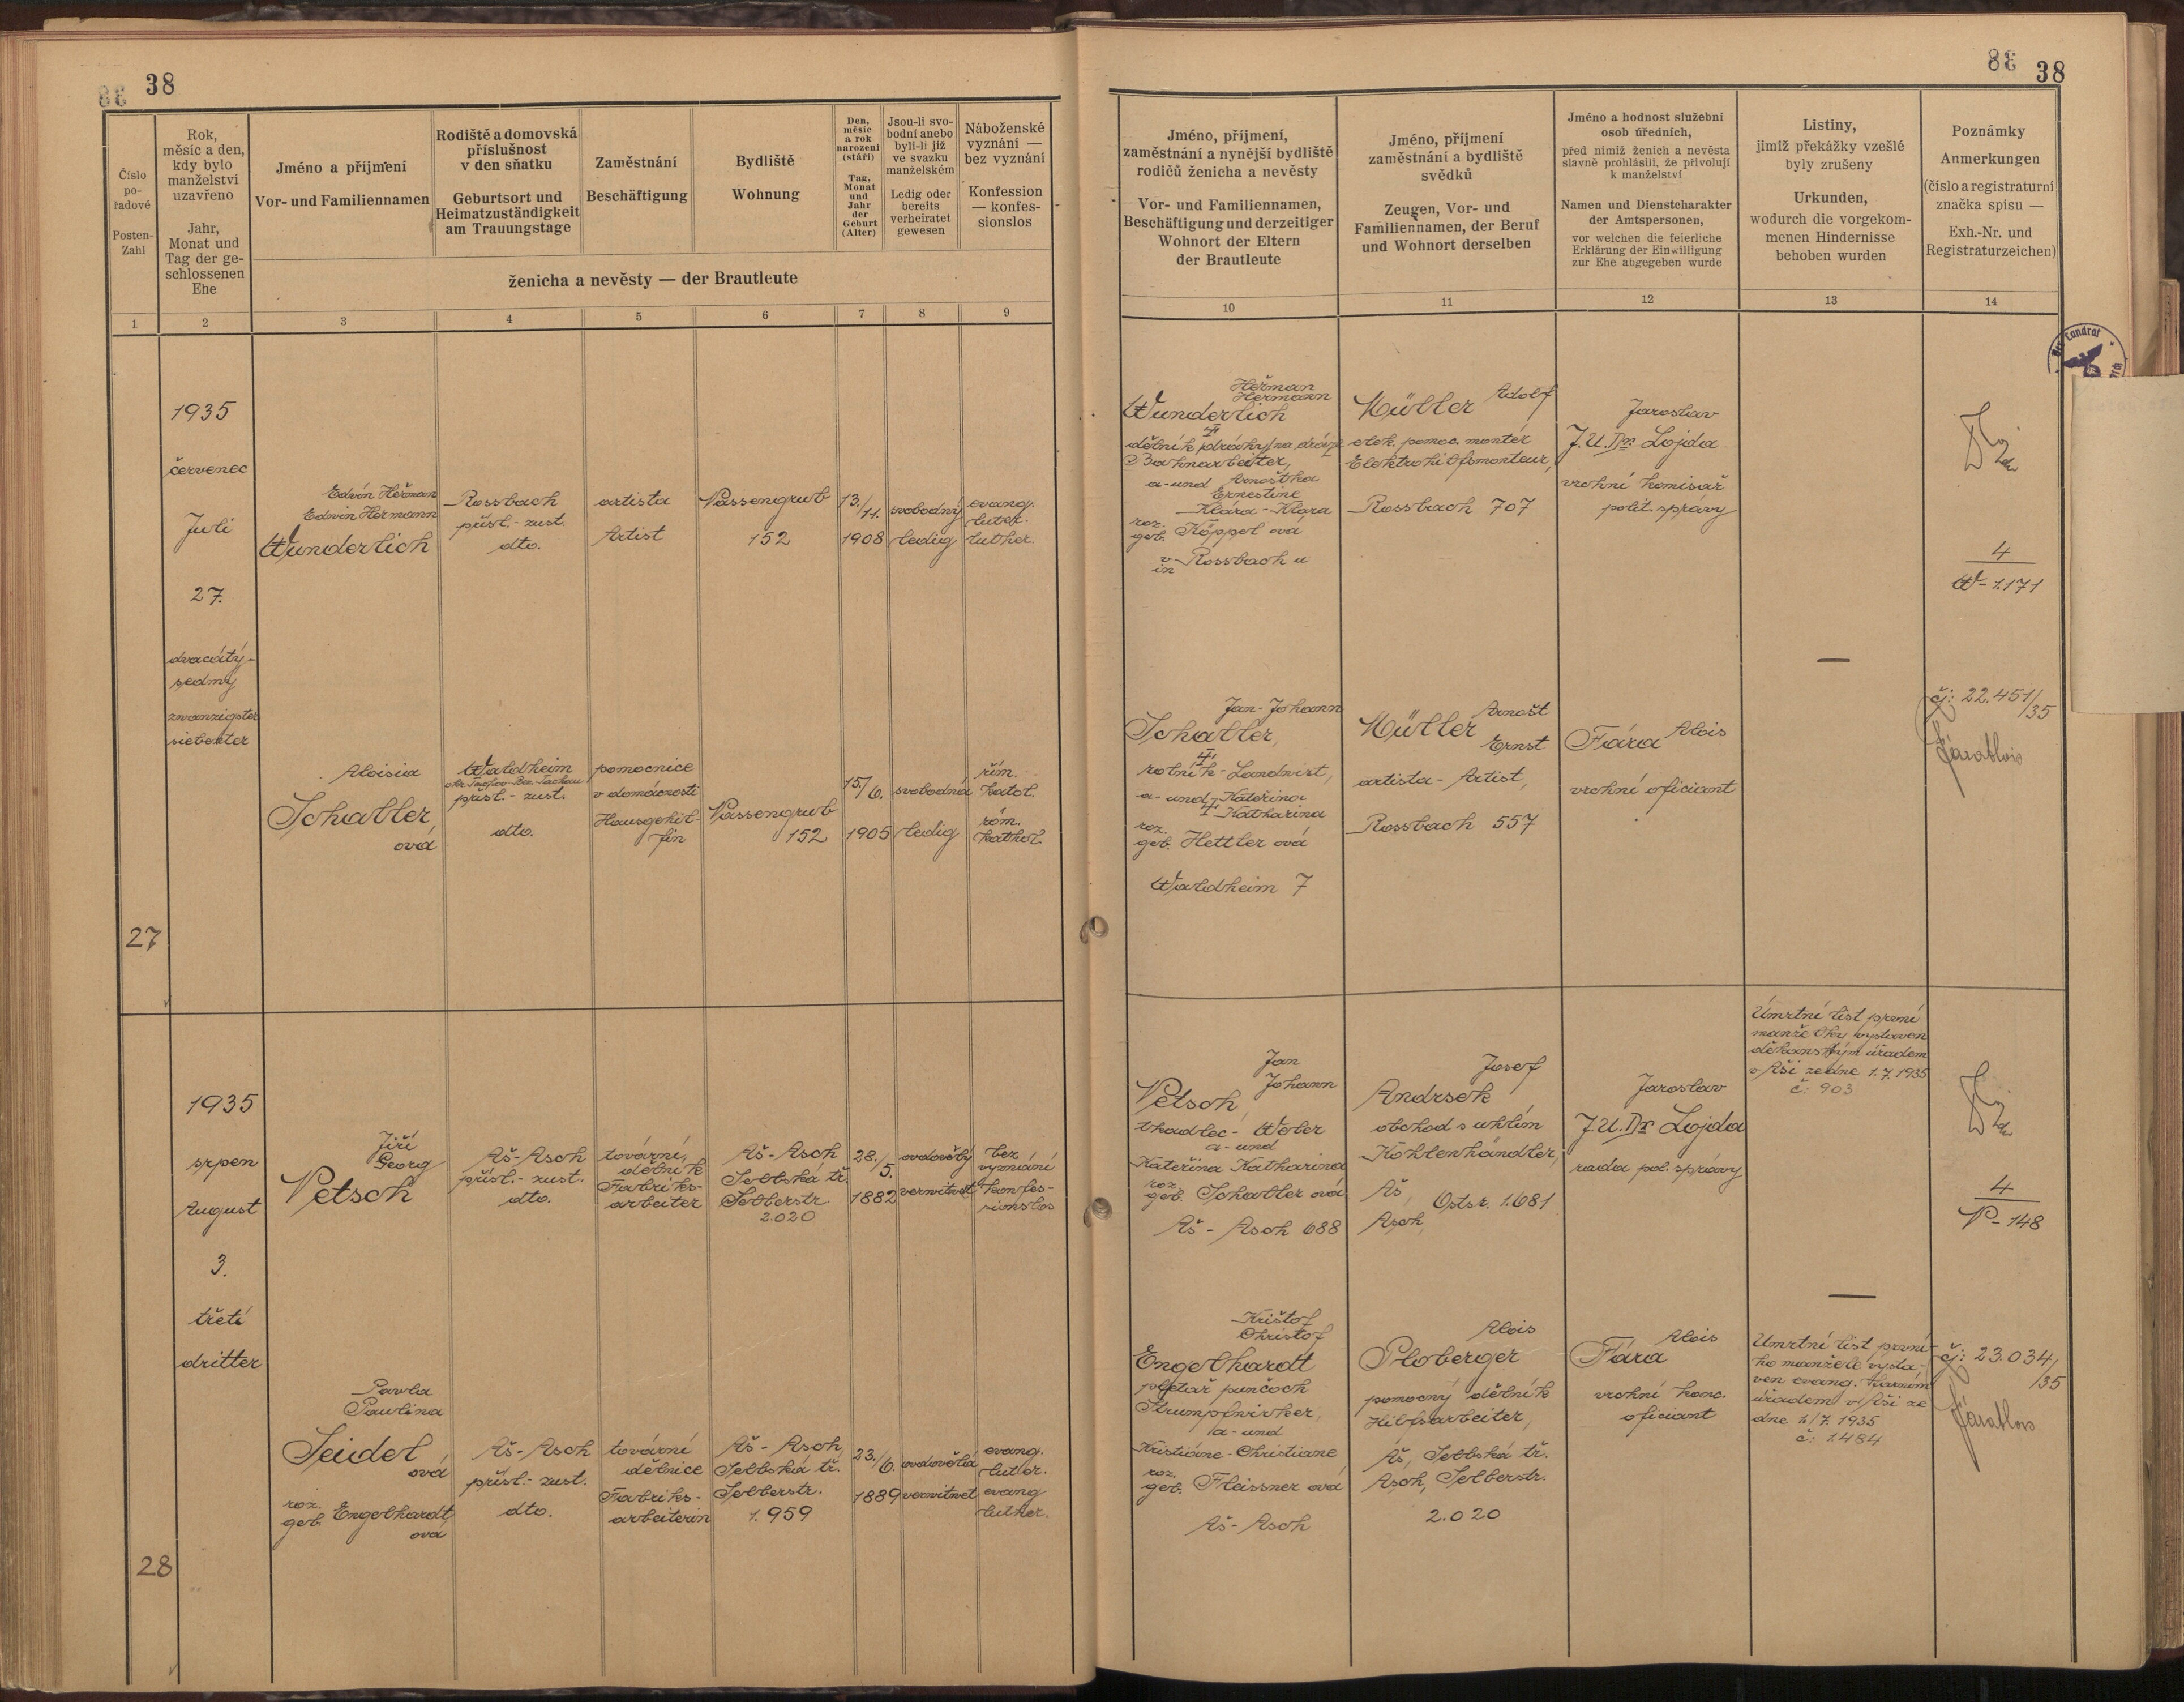 38
Číslo
po-
řadové
Posten-
Zahl
Rok,
měsíc a den,
kdy bylo
manželství
uzavřeno
Jahr,
Monat und
Tag der ge-
schlossenen
Ehe
Jméno a příjmení
Vor- und Familiennamen
Rodiště a domovská
příslušnost
v den sňatku
Geburtsort und
Heimatzuständigkeit
am Trauungstage
Zaměstnání
Beschäftigung
Bydliště
Wohnung
Den,
měsíc
a rok
narození
(stáří)
Tag,
Monat
und
Jahr
der
Geburt
(Alter)
Jsou-li svo-
bodni anebo
byli-li již
ve svazku
manželském
Ledig oder
bereits
verheiratet
gewesen
Náboženské
vyznání —
bez vyznání
Konfession
— konfes-
sionslos
ženicha a nevěsty — der Brautleute
1 2 3 4 5 6 7 8 9
1935
červenec
Juli
27.
dvacátý-
sedmý
zwanzigster
siebenter
Edvin Heřman
Edwin Hermann
Wunderlich
Rossbach
přísl.- zust.
dto.
artista
Artist
Wassengrub
152
13./
11.
1908
svobodný
ledig
evang.
luter.
luther.
Aloisia
Schaller
ová
Waldheim
přísl.- zust.
dto.
pomocnice
v domácnosti
Hausgehil-
fin
Wassengrub
152
15./
6.
1905
svobodná
ledig
řím.
katol.
röm.
kathol.
27
1935
srpen
August
3.
třetí
dritter
Jiří
Georg
Petsch
Aš-Asch
přísl.- zust.
dto.
tovární
dělník
Fabriks-
arbeiter
Aš-Asch
Selbská tř.
Selberstr.
2.020
28./
5.
1882
ovdovělý
verwitwet
bez
vyznání
konfes-
sionslos
Pavla
Paulina
Seidel
ová
roz.
geb. Engelhardt
ová
Aš-Asch
přísl.- zust.
dto.
tovární
dělnice
Fabriks-
arbeiterin
Aš-Asch
Selbská tř.
Selberstr.
1.959
23./
6.
1889
ovdovělá
verwitwet
evang.
luter.
evang
luther.
28
38
Jméno, příjmení,
zaměstnání a nynější bydliště
rodičů ženicha a nevěsty
Vor- und Familiennamen,
Beschäftigung und derzeitiger
Wohnort der Eltern
der Brautleute
Jméno, příjmení
zaměstnání a bydliště
svědků
Zeugen, Vor- und
Familiennamen, der Beruf
und Wohnort derselben
Jméno a hodnost služební
osob úředních,
před nimiž ženich a nevěsta
slavně prohlásili, že přivolují
k manželství
Namen und Dienstcharakter
der Amtspersonen,
vor welchen die feierliche
Erklärung der Einwilligung
zur Ehe abgegeben wurde
Listiny,
jimiž překážky vzešlé
byly zrušeny
Urkunden,
wodurch die vorgekom-
menen Hindernisse
behoben wurden
Poznámky
Anmerkungen
(číslo a registraturní
značka spisu —
Exh.-Nr. und
Registraturzeichen)
10 11 12 13 14
Der Landrat
Heřman
Hermann
Wunderlich
dělník na dráze
Bahnarbeiter,
a-und Arnoštka
Ernestine
Klára-Klara
roz.
geb. Köppel ová
v
in Rossbach
Adolf
Müller
elek. pomoc. montér
Elektrohilfsmonteur,
Rossbach 707
Jaroslav
J.U.Dr. Lojda
vrchní komisař
polit. správy
4
W-1.171
Jan-Johann
Schaller,
rolník-Landwirt,
a-und Kateřina
Katharina
roz.
geb. Hettler ová
Waldheim 7
Arnošt
Müller Ernst
artista-Artist,
Rossbach 557
Alois
Fára
vrchní oficiant
—
čj: 22.451/
35
Fára Alois
Jan
Johann
Petsch,
tkadlec- Weber
a-und
Kateřina Katharina
roz.
geb. Schaller ová
Aš-Asch 688
Josef
Andrsek
obchod s uhlím
Kohlenhändler,
Aš,
Asch, 1.681
Jaroslav
J.U.Dr. Lojda
rada pol. správy
Úmrtní list první
manželky vystaven
děkanským úřadem
v Aši ze dne 1.7.1935
č. 903
4
P-148
—
Krištof
Christof
Engelhardt
pletař punčoch
Strumpfwirker,
a-und
Kristiáne-Christiane
roz.
geb. Fleissner ová
Aš-Asch
Alois
Ploberger
pomocný dělník
Hilfsarbeiter,
Aš, Selbská tř.
Asch, Selberstr.
2.020
Alois
Fára
vrchní kanc.
oficiant
Úmrtní list první-
ho manžela vysta-
ven evang. farním
úřadem v Aši ze
dne 1/7. 1935
č: 1.484
čj: 23.034/
35
Fára Alois